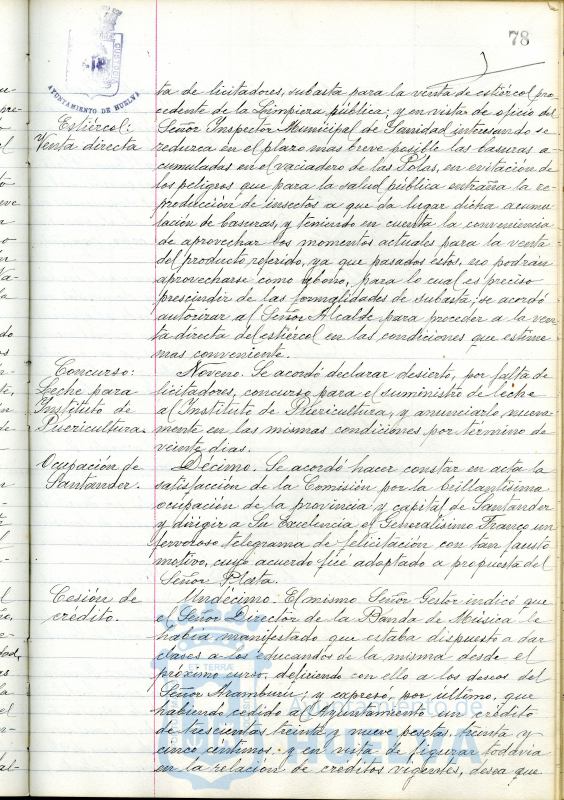 78
AYUNTAMIENTO DE HUELVA
ta de licitadores, subasta para la venta de estiércol pro-
cedente de la Limpieza pública; y en vista de oficio del
Estiércol:
Señor Inspector Municipal de Sanidad interesando se
Venta directa
reduzca en el plazo mas breve posible las basuras a-
cumuladas en el vaciadero de las Polas, en evitación de
los peligros que para la salud pública entraña la re-
producción de insectos a que da lugar dicha acumu-
lación de basuras, y teniendo en cuenta la conveniencia
de aprovechar los momentos actuales para la venta
del producto referido, ya que pasados estos, no podrán
aprovecharse como abono, para lo cual es preciso
prescindir de las formalidades de subasta; se acordó
autorizar al Señor Alcalde para proceder a la ven-
ta directa del estiércol en las condiciones que estime
mas conveniente.
Concurso:
Leche para
Instituto de
Puericultura.
Noveno. Se acordó declarar desierto, por falta de
licitadores, concurso para el suministro de leche
al Instituto de Puericultura, y anunciarlo nueva-
mente en las mismas condiciones por término de
veinte dias.
Ocupación de
Santander.
Décimo. Se acordó hacer constar en acta la
satisfacción de la Comisión por la brillantísima
ocupación de la provincia y capital de Santander
y dirigir a Su Excelencia el Generalísimo Franco un
fervoroso telegrama de felicitación con tan fausto
motivo, cuyo acuerdo fué adoptado a propuesta del
Señor Plata.
Cesión de
crédito.
Undécimo. El mismo Señor Gestor indicó que
el Señor Director de la Banda de Música le
había manifestado que estaba dispuesto a dar
clases a los educandos de la misma desde el
próximo curso, defiriendo con ello a los deseos del
Señor Aramburu; y expresó, por último, que
habiendo cedido al Ayuntamiento un crédito
de trescientas treinta y nueve pesetas treinta y
cinco centimos y en vista de figurar todavia
en la relación de créditos vigentes, desea que
Ayuntamiento de
HUELVA